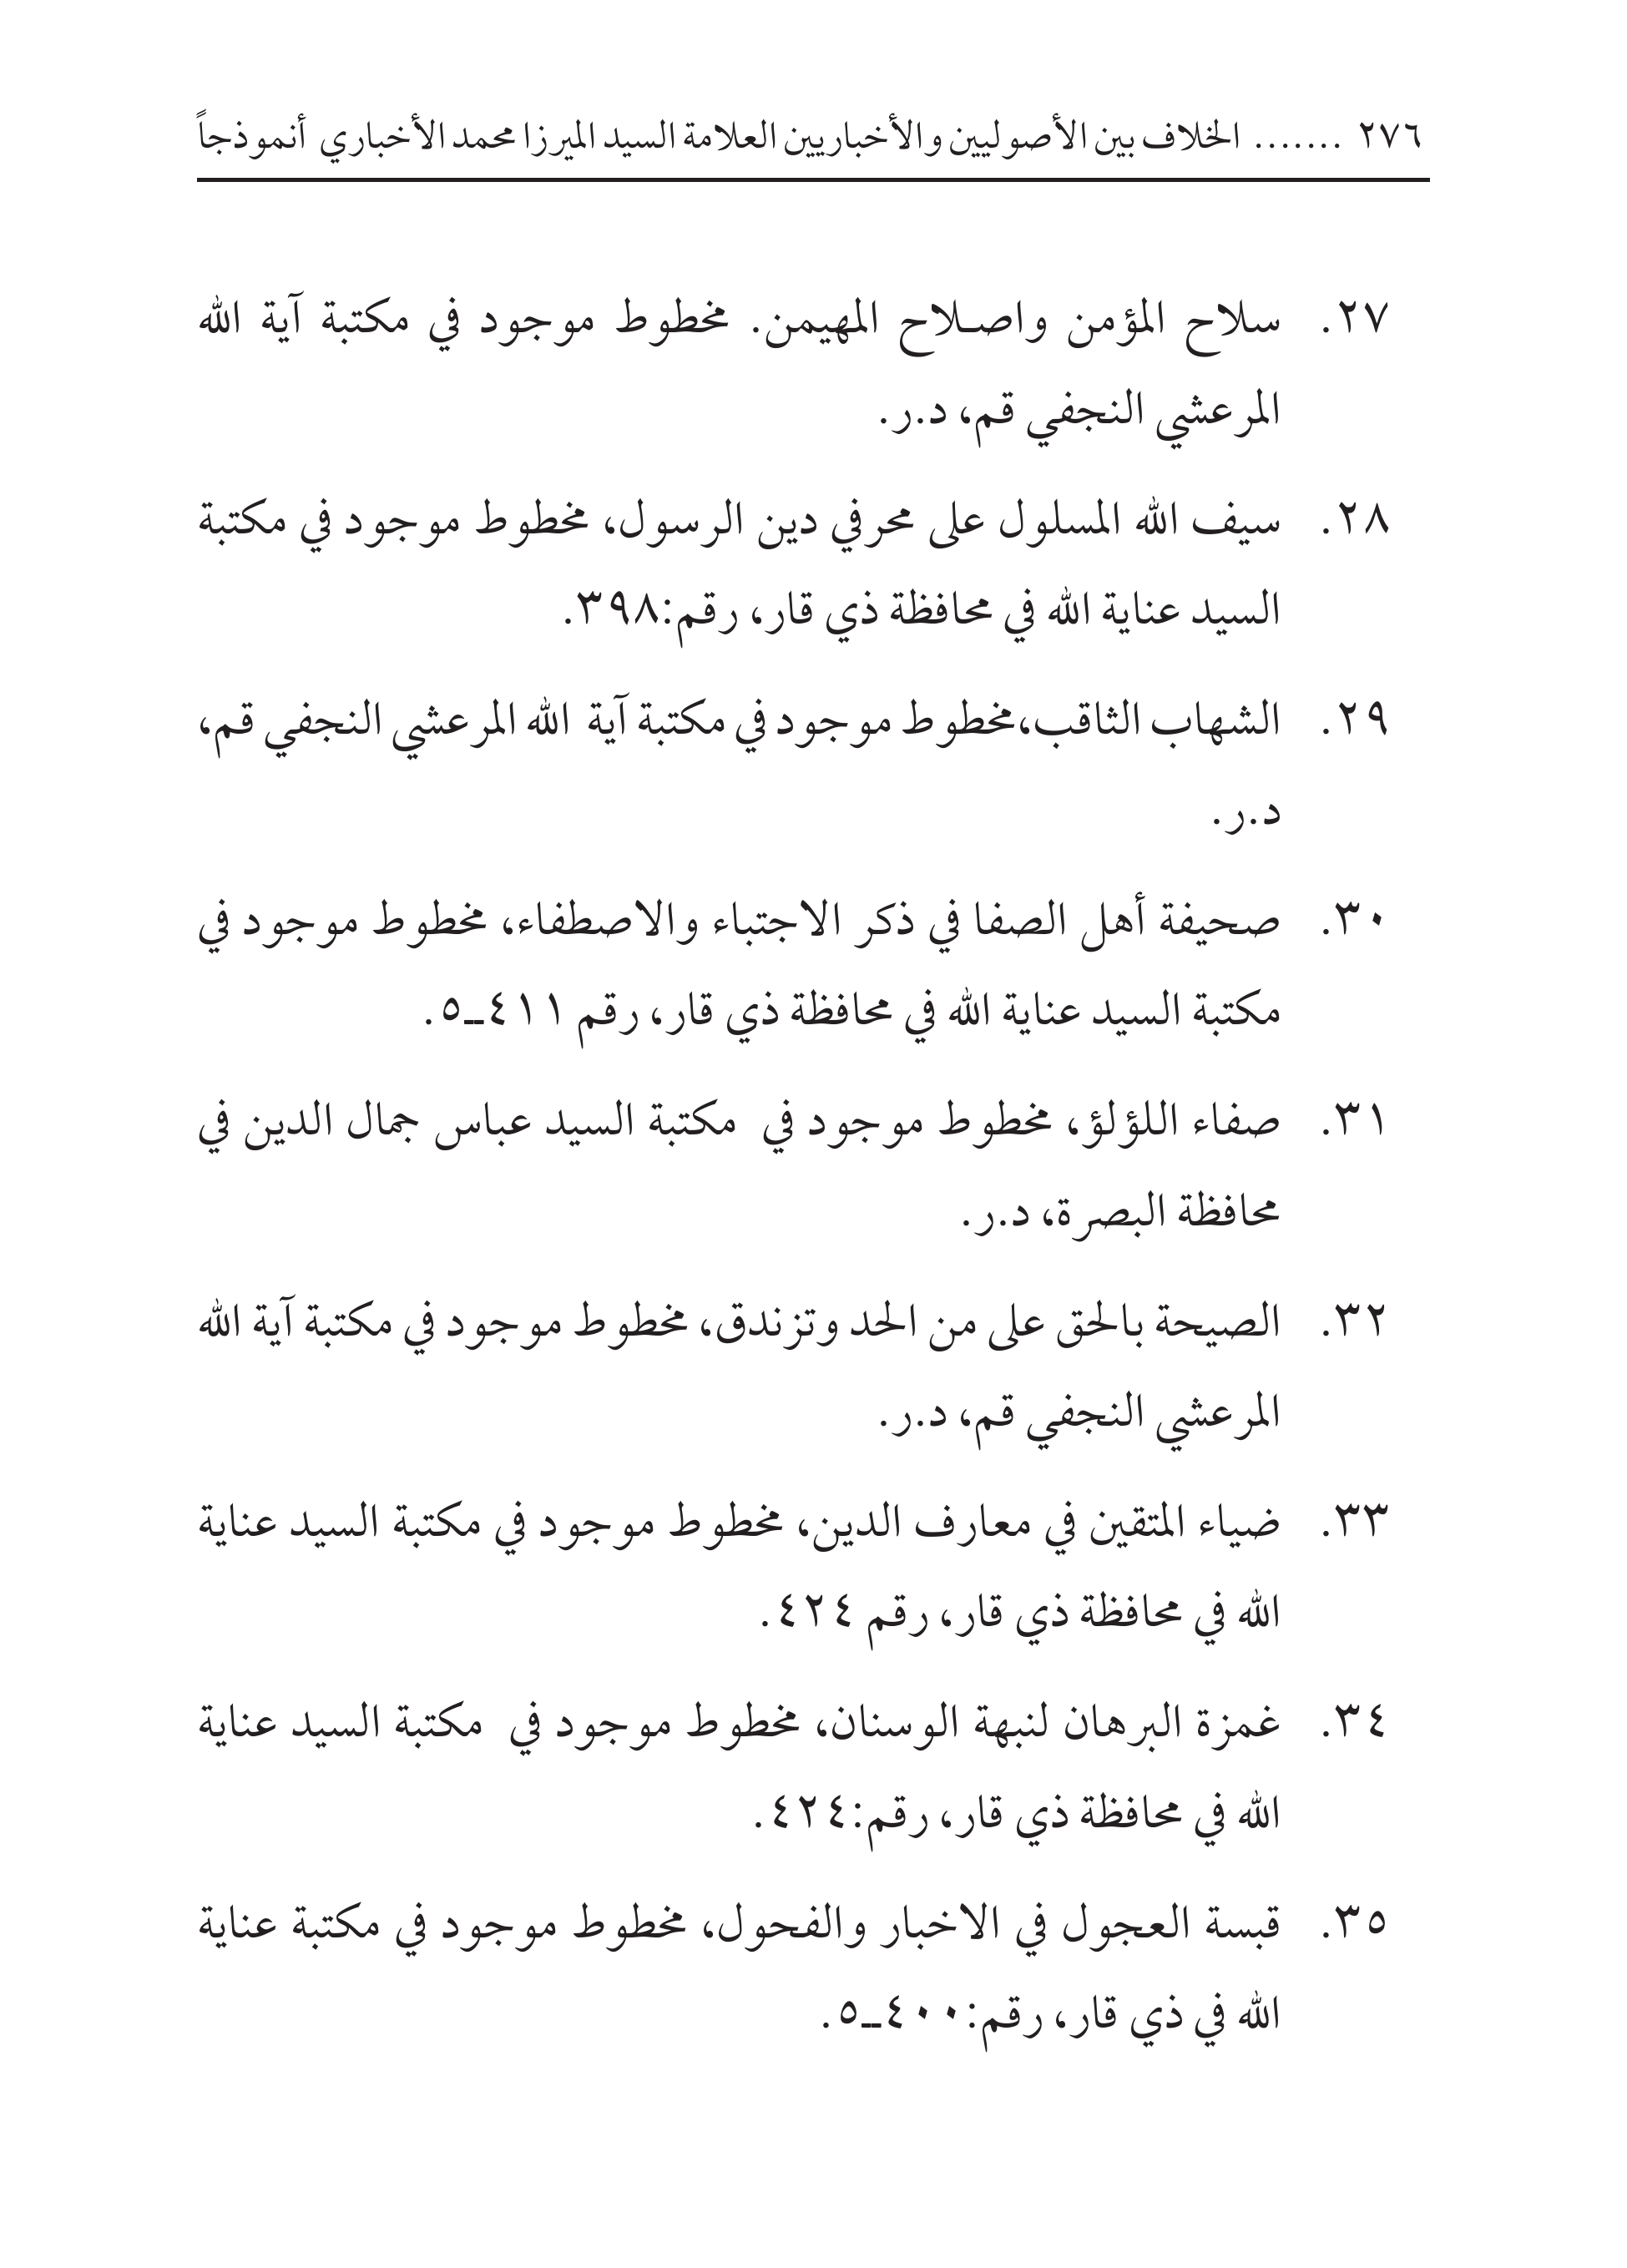 ٢٧٦ ....... الخلاف بين الأصوليين والأخباريين العلامة السيد الميرزا محمد الأخباري أنموذجاً
٢٧. سلاح المؤمن واصلاح المهيمن. مخطوط موجود في مكتبة آية الله
المرعشي النجفي قم، د.ر.
٢٨. سيف الله المسلول على محرفي دين الرسول، مخطوط موجود في مكتبة
السيد عناية الله في محافظة ذي قار، رقم:٣٩٨.
٢٩. الشهاب الثاقب،مخطوط موجود في مكتبة آية الله المرعشي النجفي قم،
د.ر.
٣٠. صحيفة أهل الصفا في ذكر الاجتباء والاصطفاء، مخطوط موجود في
مكتبة السيد عناية الله في محافظة ذي قار، رقم ٤١١ـ٥.
٣١. صفاء اللؤلؤ، مخطوط موجود في مكتبة السيد عباس جمال الدين في
محافظة البصرة، د.ر.
٣٢. الصيحة بالحق على من الحد وتزندق، مخطوط موجود في مكتبة آية الله
المرعشي النجفي قم، د.ر.
٣٣. ضياء المتقين في معارف الدين، مخطوط موجود في مكتبة السيد عناية
الله في محافظة ذي قار، رقم ٤٢٤.
٣٤. غمزة البرهان لنبهة الوسنان، مخطوط موجود في مكتبة السيد عناية
الله في محافظة ذي قار، رقم:٤٢٤.
٣٥. قبسة العجول في الاخبار والفحول، مخطوط موجود في مكتبة عناية
الله في ذي قار، رقم:٤٠٠ـ٥.